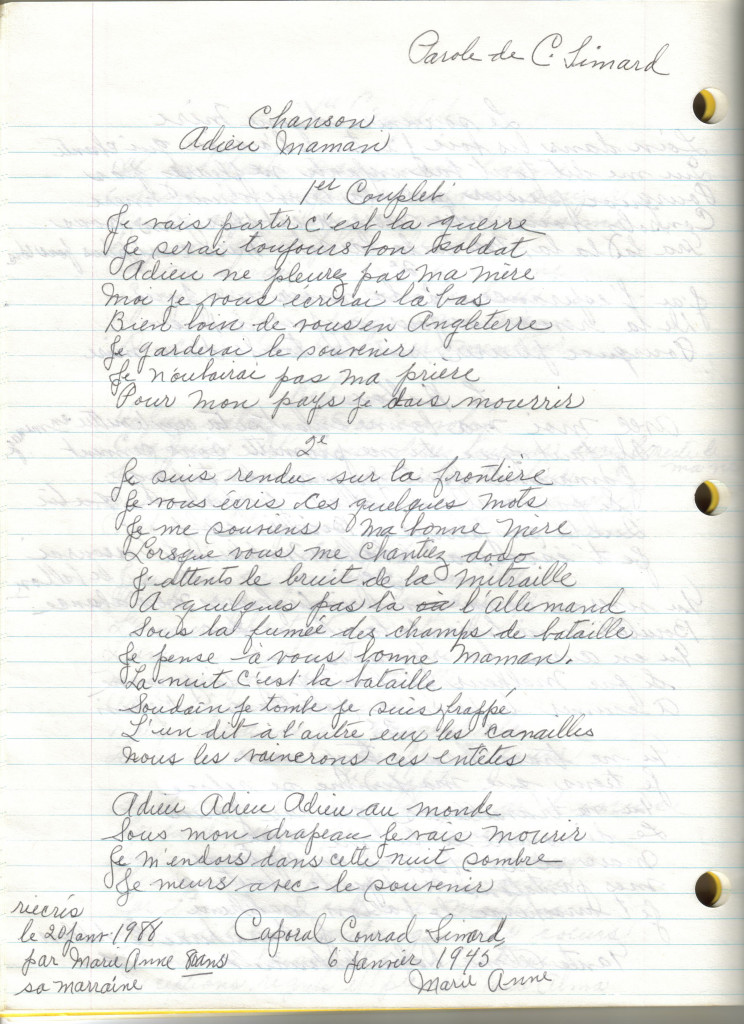 Parole de C. Simard
Chanson
Adieu Maman
1er Couplet
Je vais partir c'est la guerre
Je serai toujours bon soldat
Adieu ne pleurez pas ma mère
Moi je vous écrirai là bas
Bien loin de vous en Angleterre
Je garderai le souvenir
Je n'oubirai pas ma prière
Pour mon pays je dais mourrir
2e
Je suis rendu sur la frontière
Je vous écris ces quelques mots
Je me souviens ma bonne mère
Lorsque vous me chantiez dodo
J'attents le bruit de la mitraille
A quelques pas là l'Allemand
Sous la fumée des champs de bataille
Je pense à vous bonne Maman.
La nuit c'est la bataille
Soudain je tombe je suis frappé
L'un dit à l'autre eux les canailles
Nous les vaincrons ces entêtés
Adieu Adieu Adieu au monde
Sous mon drapeau je vais mourir
Je m'endors dans cette nuit sombre
Je meurs avec le souvenir
riecris
le 20 janv 1988
par Marie Anne 80ans
sa marraine
Caporal Conrad Simard,
6 janvier 1945
Marie Anne